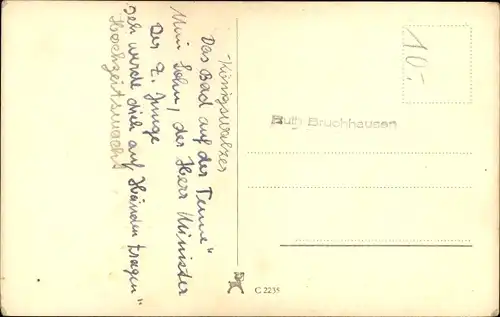 Königswalzer
Das Bad auf der Tenne"
Mein Sohn, der Herr Minister
Der 7. Junge
Ich werde dich auf Händen tragen"
Hochzeitsnacht
10.-
Ruth Bruchhausen
C 2235